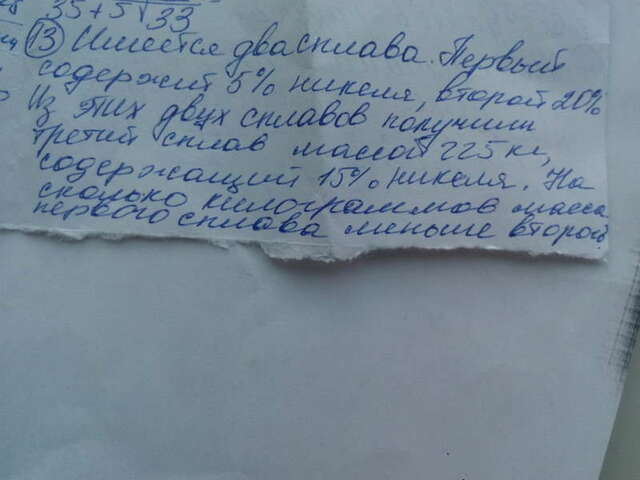 35+5√33
13 Имеется два сплава. Первый
содержит 5% никеля, второй 20%
Из этих двух сплавов получили
третий сплав массой 225 кг,
содержащий 15% никеля. На
сколько килограммов масса
первого сплава меньше второй